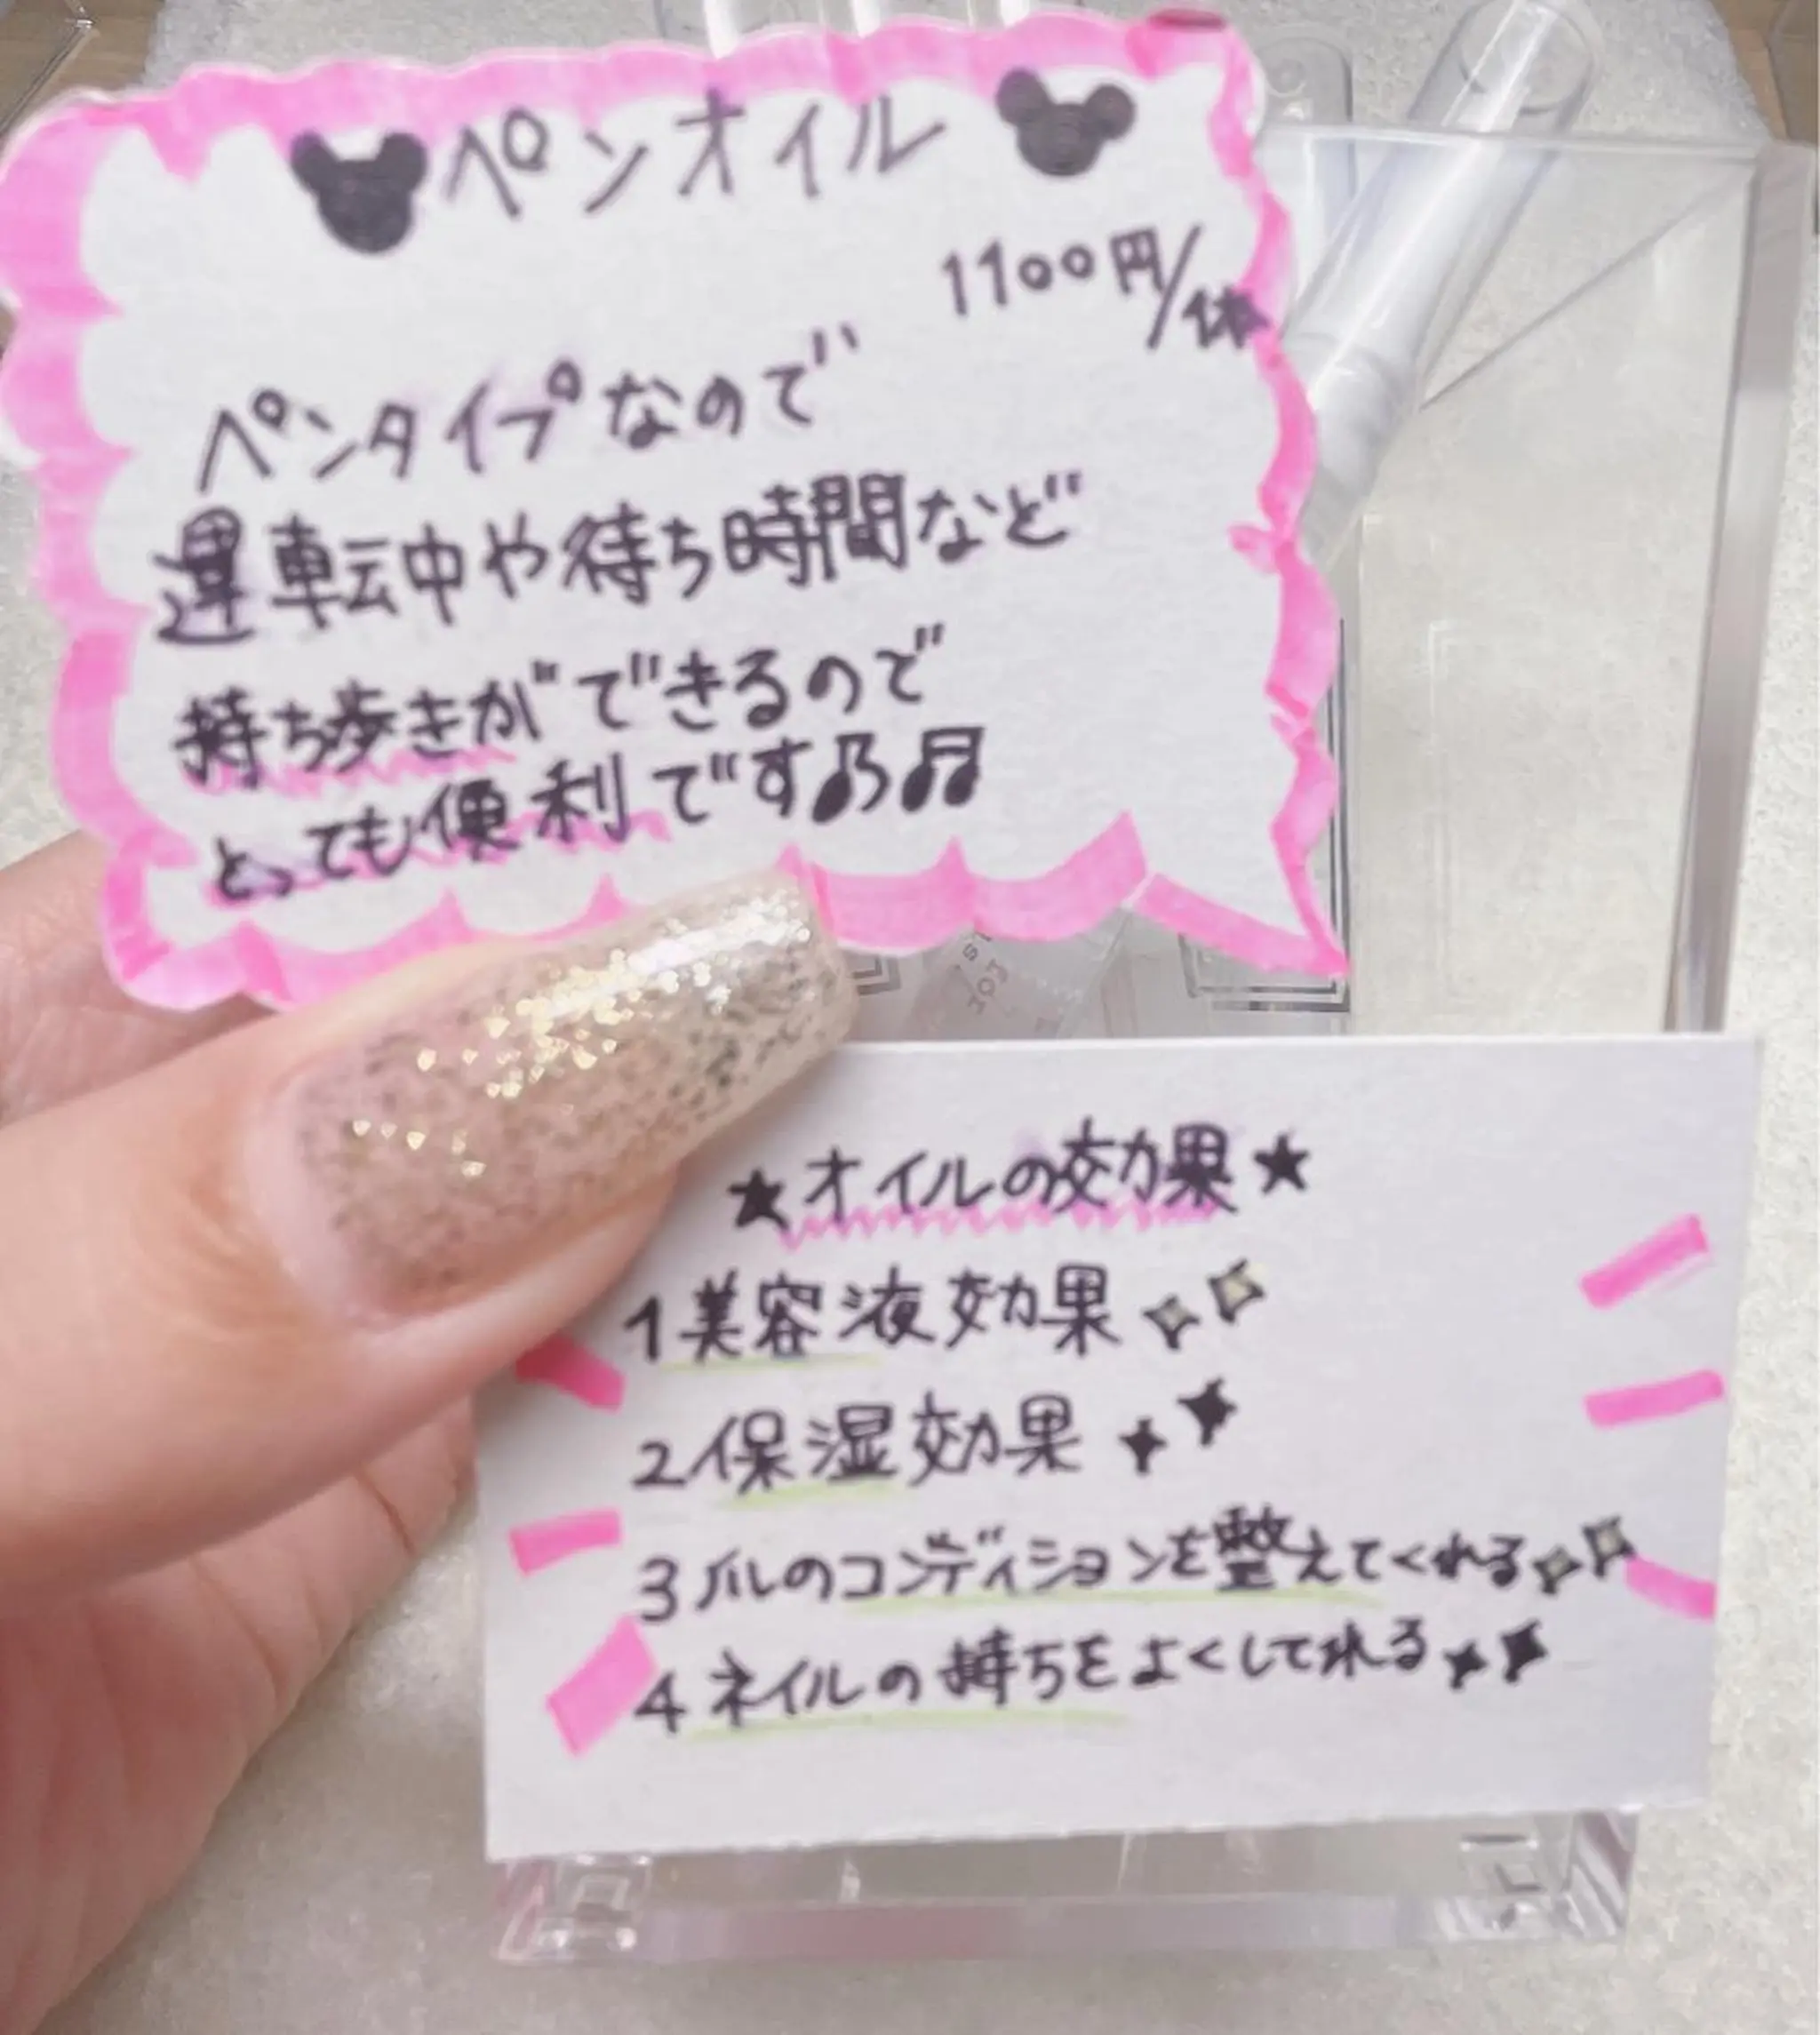 ペンオイル
1100円/1本
ペンタイプなので
運転中や待ち時間など
持ち歩きができるので
とっても便利です♪♫
★オイルの効果★
1美容液効果
2保湿効果
3爪のコンディションを整えてくれる
4ネイルの持ちをよくしてくれる